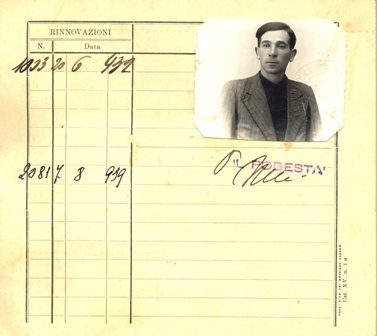 RINNOVAZIONI
N. Data
1033 20 6 932
2081 7 8 939
IL PODESTA'
Cat. XV, n. 1 d